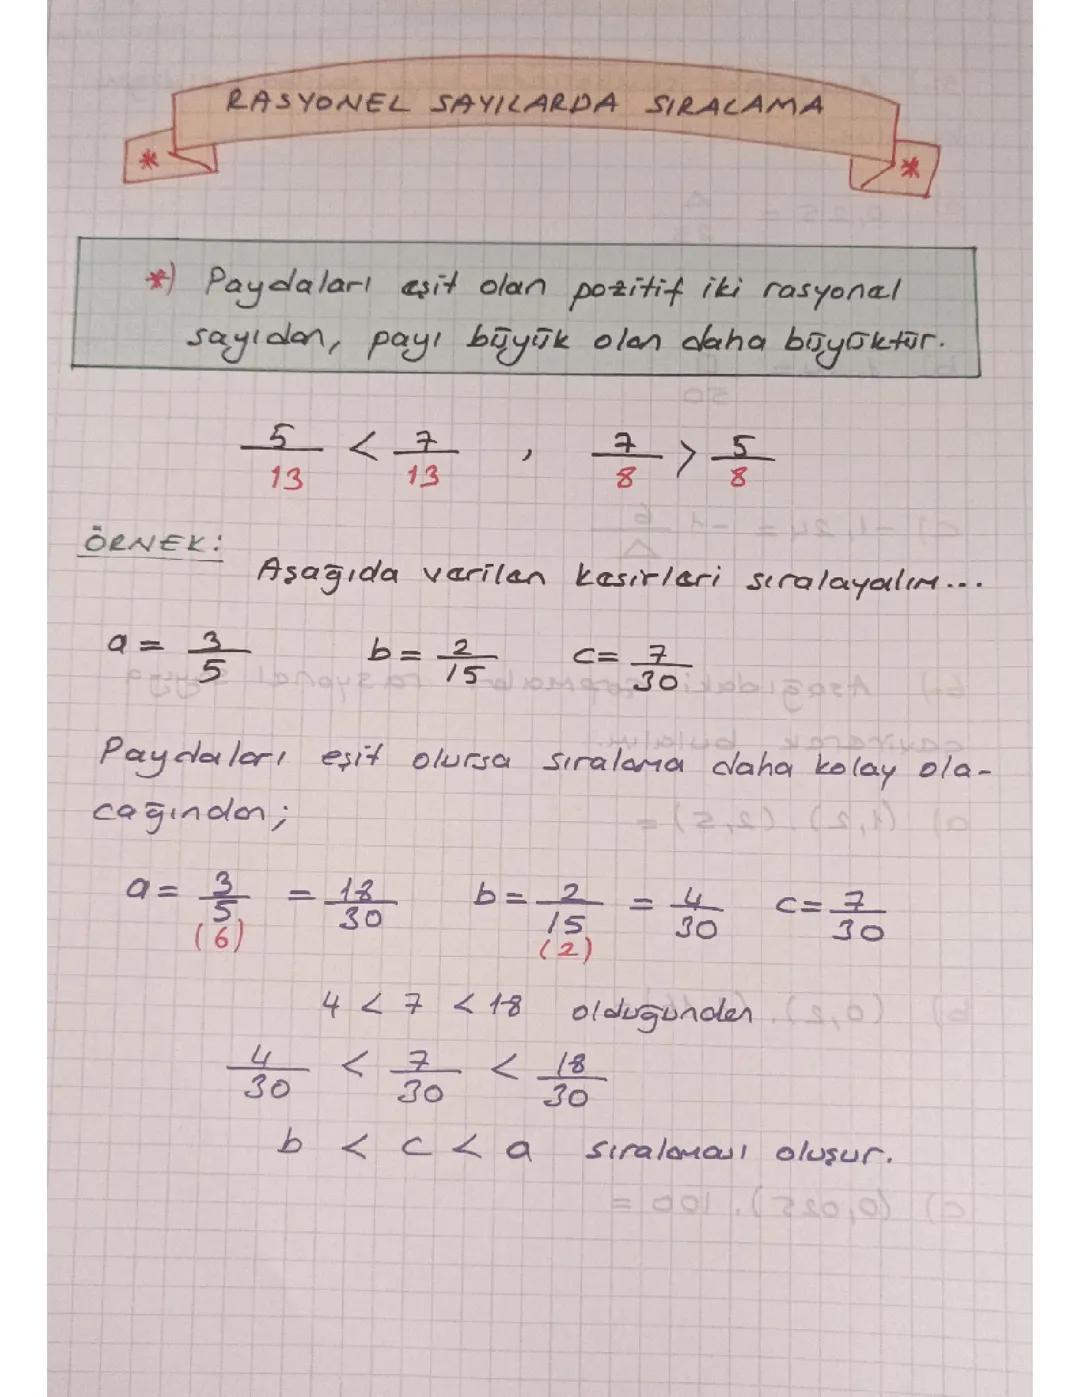 RASYONEL SAYILARDA SIRALAMA
* *
*) Paydaları eşit olan pozitif iki rasyonel
sayıdan, payı büyük olan daha büyüktür.
5/13 < 7/13 , 7/8 > 5/8
ÖRNEK:
Aşağıda verilen kesirleri sıralayalım...
a = 3/5 b = 2/15 c = 7/30
Paydaları eşit olursa sıralama daha kolay ola-
cağından;
a = 3/5 (6) = 18/30 b = 2/15 (2) = 4/30 c = 7/30
4 < 7 < 18 olduğundan
4/30 < 7/30 < 18/30
b < c < a sıralaması oluşur.